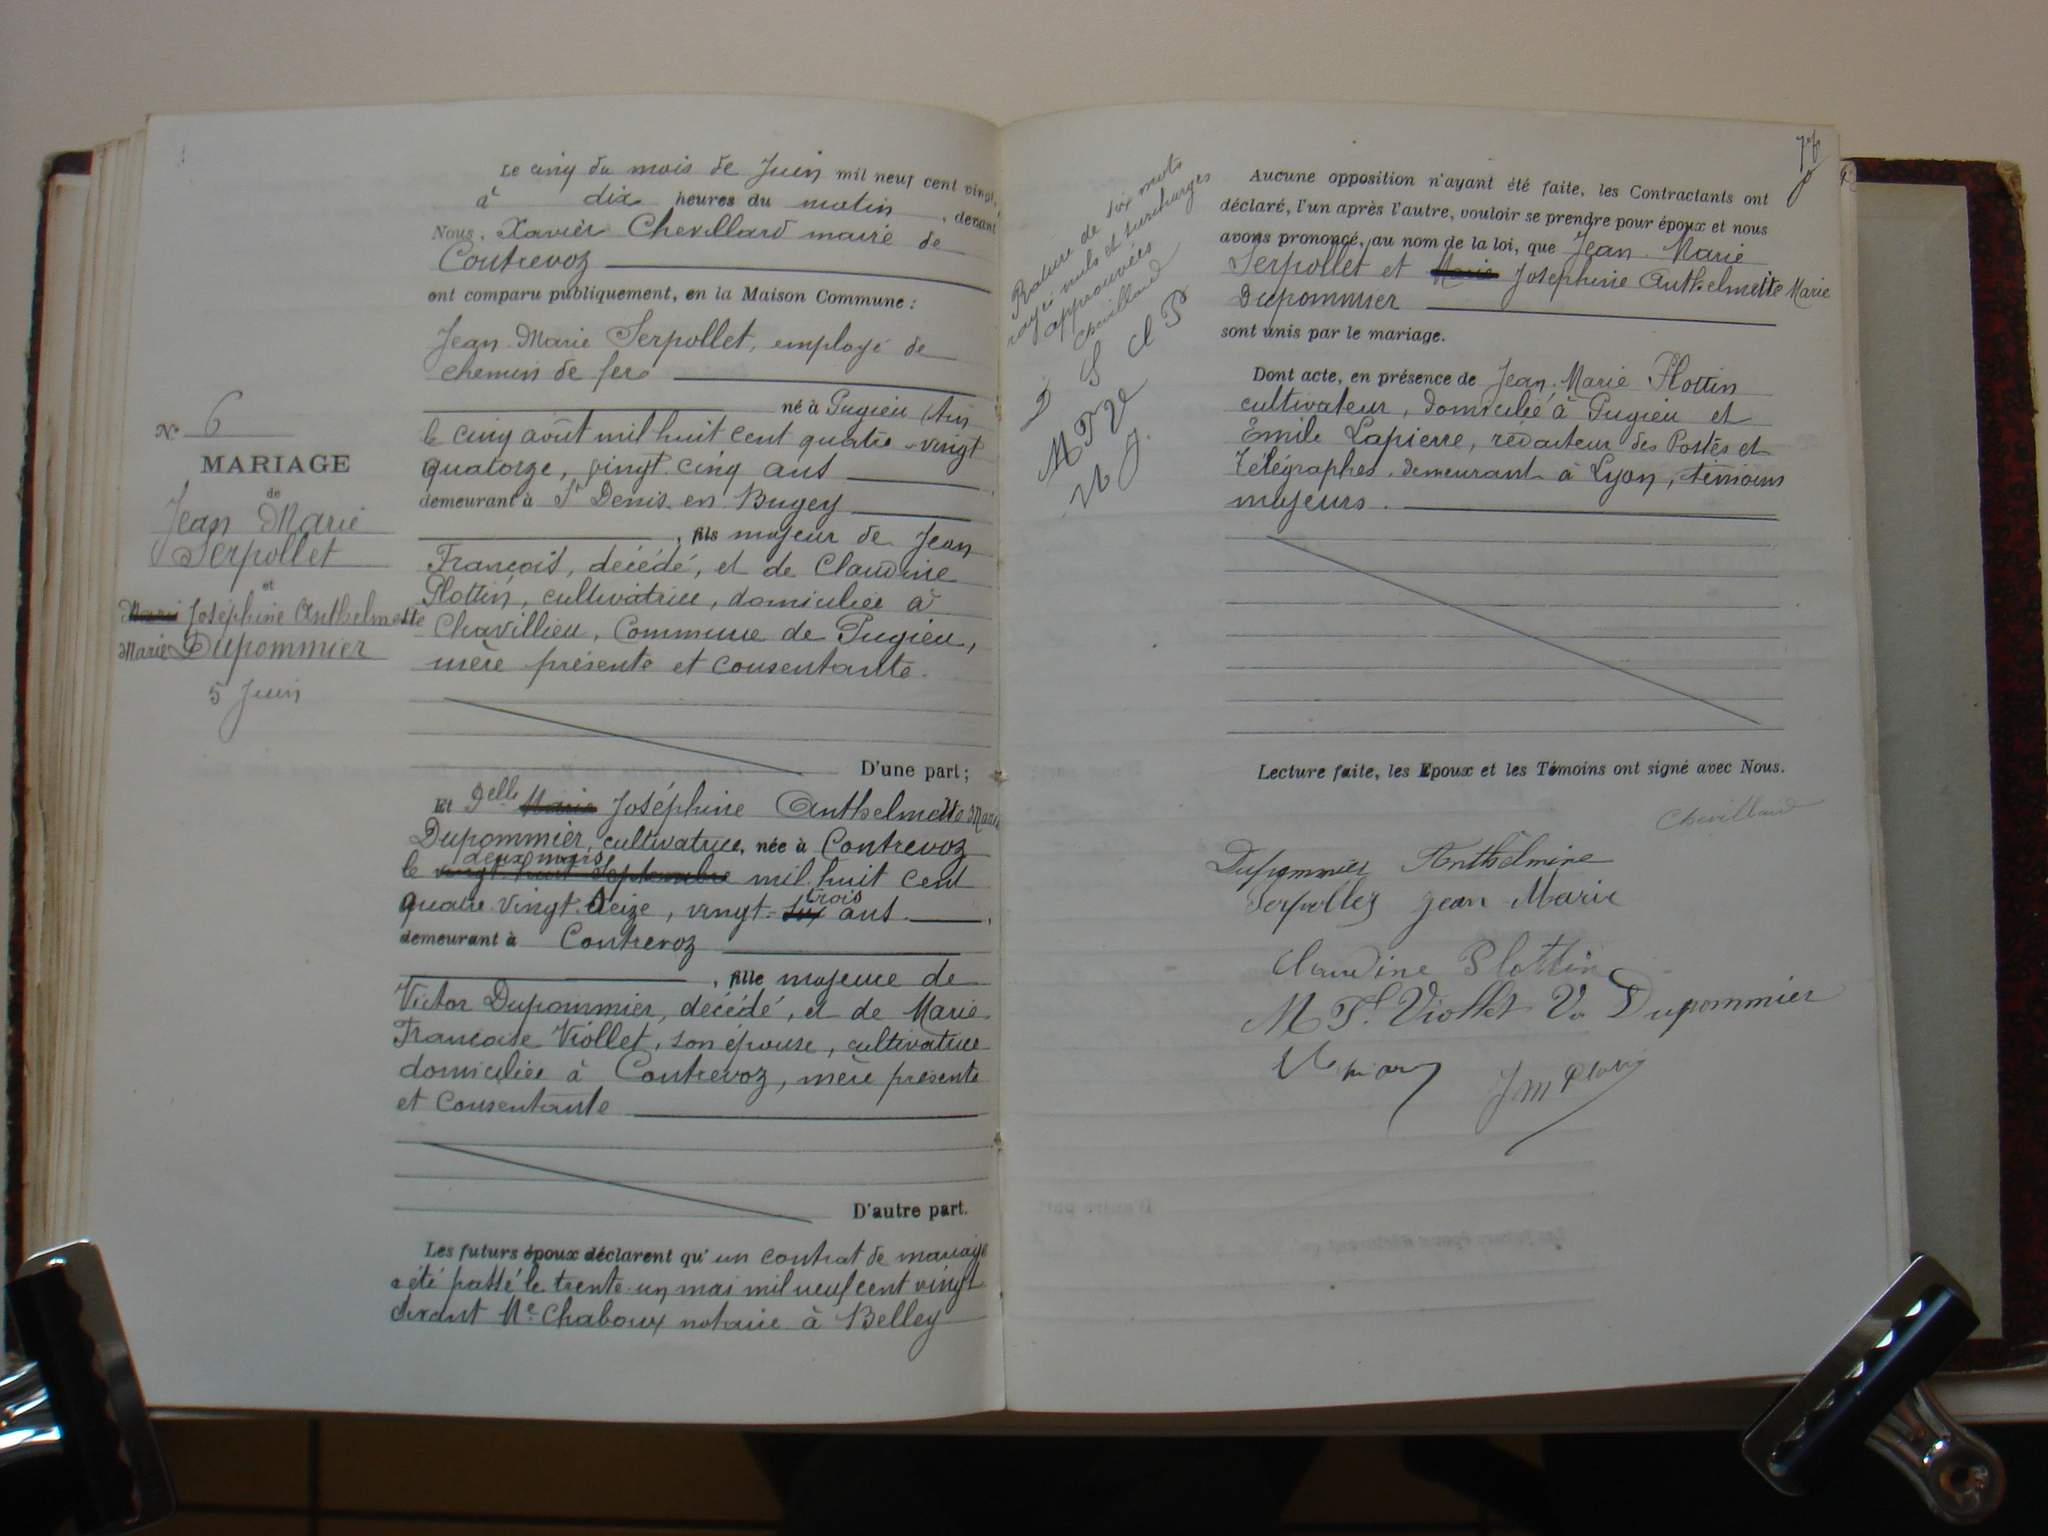 Le cinq du mois de Juin mil neuf cent vingt,
à dix heures du matin, devant
Nous, Xavier Chevillard maire de
Contrevoz
ont comparu publiquement, en la Maison Commune :
Jean Marie Serpollet, employé de
chemin de fer
né à Pugieu (Ain
le cinq août mil huit cent quatre-vingt
quatorze, vingt-cinq ans
demeurant à St Denis en Bugey
, fils majeur de Jean
François, décédé, et de Claudine
Plottin, cultivatrice, domiciliée à
Chavillieu, Commune de Pugieu,
mère présente et consentante.
D'une part ;
Et Delle Marie Joséphine Anthelmette Marie
Dupommier, cultivatrice, née à Contrevoz
deux mars
le vingt huit Septembre mil huit cent
trois
quatre vingt seize, vingt-six ans
demeurant à Contrevoz
, fille majeure de
Victor Dupommier, décédé, et de Marie
Françoise Viollet, son épouse, cultivatrice
domiciliée à Contrevoz, mère présente
et consentante
D'autre part.
Les futurs époux déclarent qu'un contrat de mariage
a été passé le trente-un mai mil neuf cent vingt
devant Me Chaboux notaire à Belley
No 6
MARIAGE
de
Jean Marie
Serpollet
et
Marie Joséphine Anthelmette
Marie Dupommier
5 Juin
76
Rature de six mots
rayés nuls et surcharges
approuvées
Chevillard
D S C P
M F V
J.
Aucune opposition n'ayant été faite, les Contractants ont
déclaré, l'un après l'autre, vouloir se prendre pour époux et nous
avons prononcé, au nom de la loi, que Jean Marie
Serpollet et Marie Joséphine Anthelmette Marie
Dupommier
sont unis par le mariage.
Dont acte, en présence de Jean-Marie Plottin
cultivateur, domicilié à Pugieu et
Emile Lapierre, rédacteur des Postes et
Télégraphes, demeurant à Lyon, témoins
majeurs.
Lecture faite, les Epoux et les Témoins ont signé avec Nous.
Chevillard
Dupommier Anthelmine
Serpollet Jean Marie
Claudine Plottin
M F. Viollet Ve Dupommier
J M Plottin